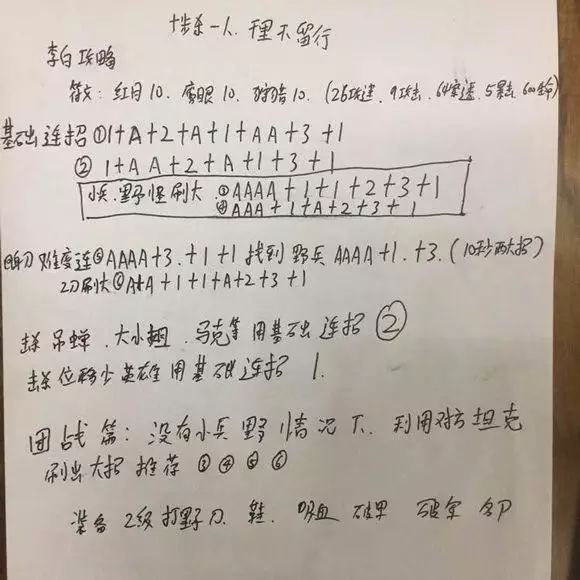 十步杀一人、千里不留行
李白攻略
符文:红月10、鹰眼10、狩猎10、(26攻速、9攻击、64穿透、5暴击、600生命)
基础连招①1+A+2+A+1+AA+3+1
②1+AA+2+A+1+3+1
小兵、野怪刷大③AAAA+1+1+2+3+1
④AAA+1+A+2+3+1
难度连⑤AAAA+3.+1+1找到野兵AAAA+1.+3.(10秒两大招)
2刀刷大⑥A+A+1+1+A+2+3+1
杀吊蝉、大小翘、马克等用基础连招②
杀位移少英雄用基础连招1.
团战篇:没有小兵野情况下、利用对方坦克
刷出大招推荐③④⑤⑥
装备2级打野刀、鞋、吸血 破甲 破军 名刀